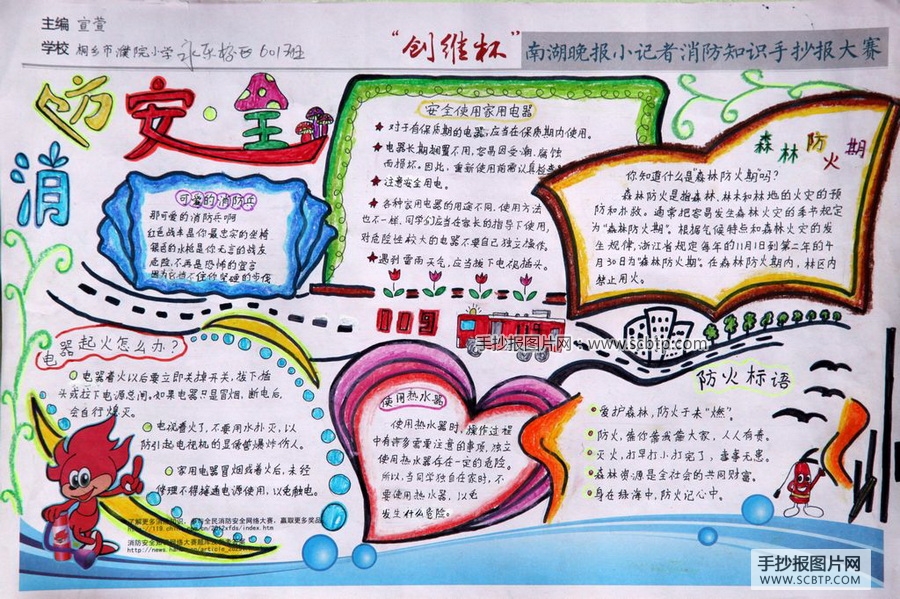 主编 宣萱
学校 桐乡市濮院小学 601班
“创维杯”南湖晚报小记者消防知识手抄报大赛
消防安全
可爱的消防兵
那可爱的消防兵啊
红色战车是你最忠实的坐椅
银色的水枪是你无言的战友
危险,不再是恐怖的宣言
因为它挡不住你坚硬的步伐
安全使用家用电器
对于有保质期的电器,应当在保质期内使用。
电器长期搁置不用,容易因受潮、腐蚀
而损坏。因此,重新使用前需认真检查
注意安全用电。
各种家用电器的用途不同,使用方法
也不一样,同学们应当在家长的指导下使用,
对危险性较大的电器不要自己独立操作。
遇到雷雨天气,应当拔下电视插头。
森林防火期
你知道什么是“森林防火期”吗?
森林防火是指森林、林木和林地的火灾的预
防和扑救。通常把容易发生森林火灾的季节规定
为“森林防火期”。根据气候特点和森林火灾的发
生规律,浙江省规定每年的11月1日到第二年的4
月30日为“森林防火期”。在森林防火期内,林区内
禁止用火。
119
手抄报图片网:www.scbtp.com
电器起火怎么办?
电器着火以后要立即关掉开关,拔下插
头或拉下电源总闸。如果电器只是冒烟,断电后,
会自行熄灭。
电视着火了,不要用水扑灭,以
防引起电视机的显像管爆炸伤人。
家用电器冒烟或着火后,未经
修理不得接通电源使用,以免触电。
使用热水器
使用热水器时,操作过程
中有许多需要注意的事项,独立
使用热水器存在一定的危险。
所以,当同学独自在家时,不
要使用热水器,以免
发生什么危险。
防火标语
爱护森林,防火于未“燃”。
灭火,打早打小打完了,当事无患。
森林资源是全社会的共同财富。
身在绿海中,防火记心中。
手抄报图片网
WWW.SCBTP.COM